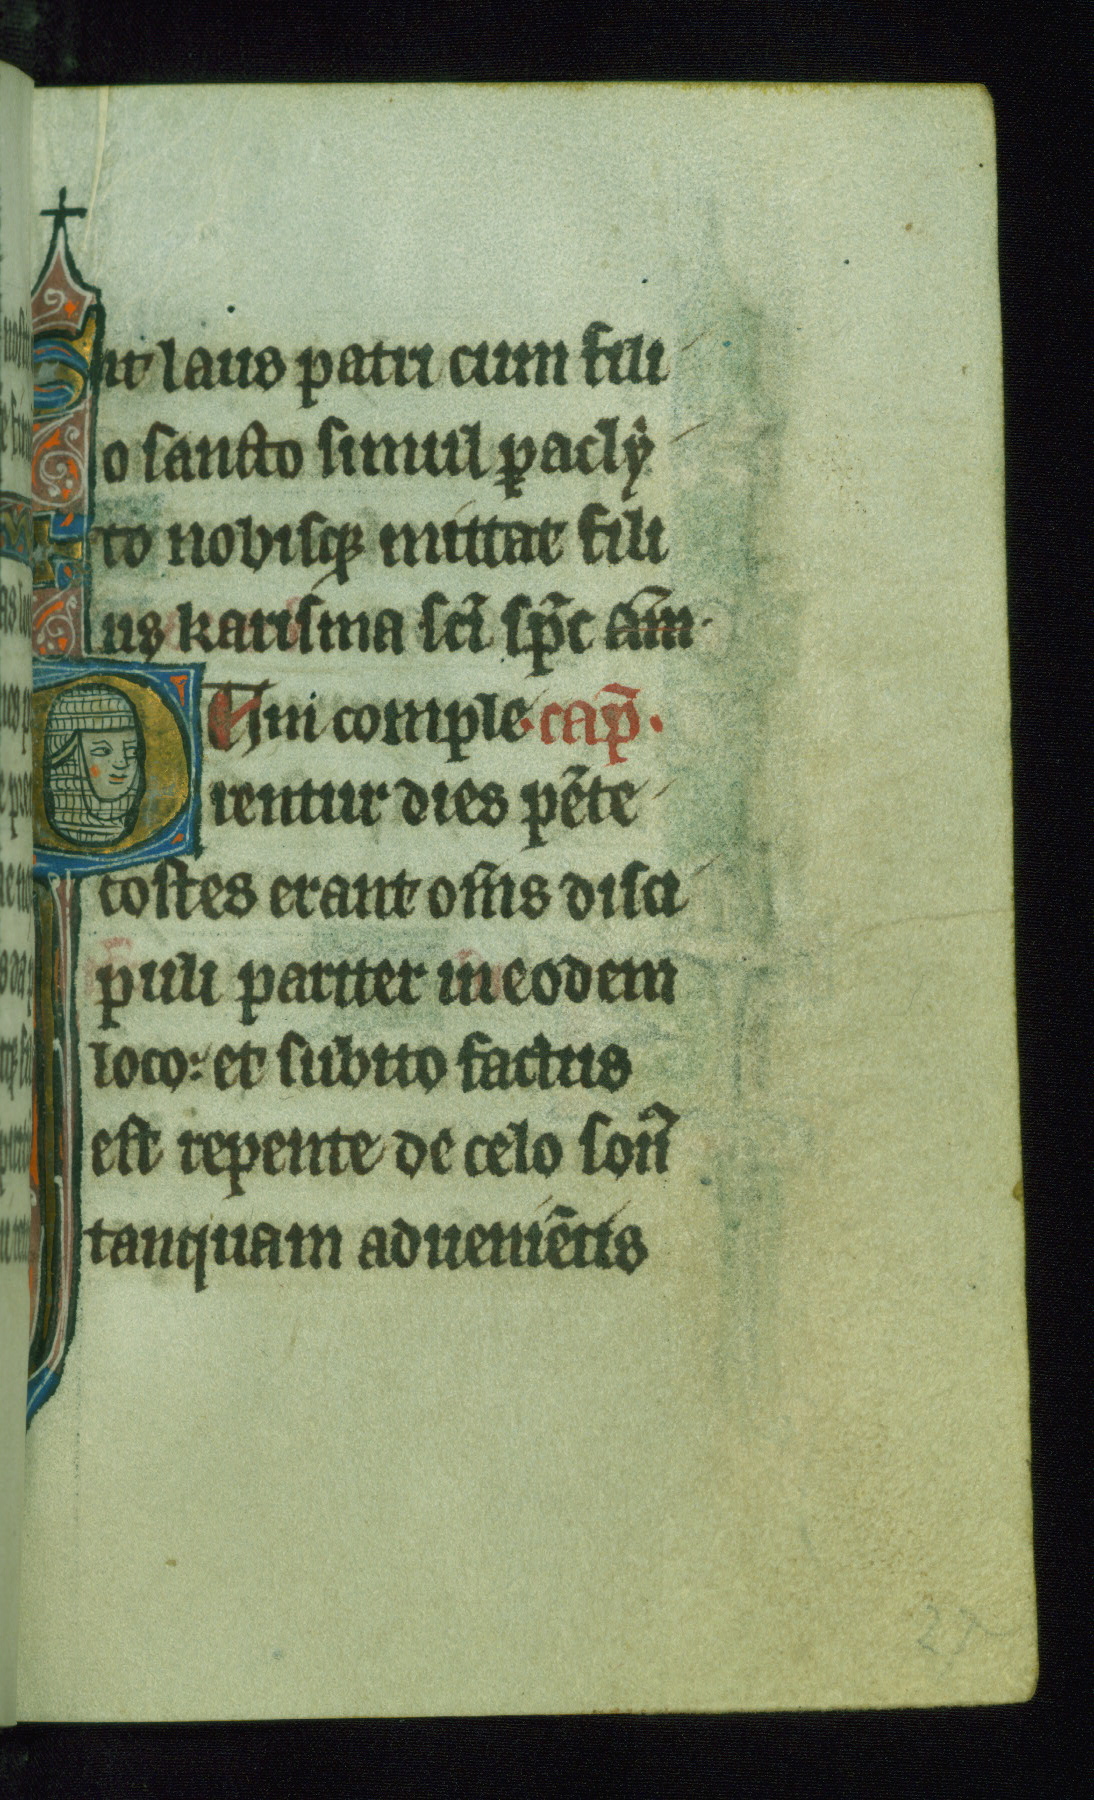 Sit laus patri cum fili
o sancto simul p̲aclẏ
to nobisqꝫ mittat fili
us karisma sc̄i sp̄c am̄·
Dum comple cap̄·
rentur dies pe̅te
costes erant om̄s disci
puli pariter in eodem
loco: et subito factus
est repente de celo son̄
tanquam aduenie̅tis
27